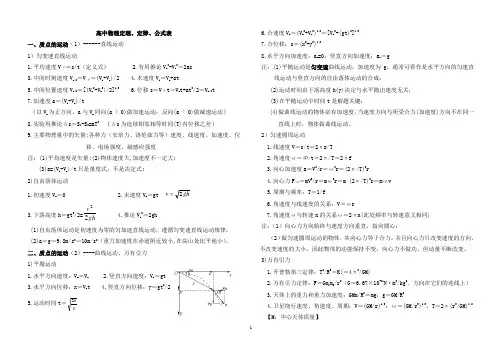 高中物理定理、定律、公式表
一、质点的运动（1）------直线运动
1）匀变速直线运动
1.平均速度V平=s/t（定义式） 2.有用推论Vt²-Vo²=2as
3.中间时刻速度Vt/2=V平=(Vt+Vo)/2 4.末速度Vt=Vo+at
5.中间位置速度Vs/2=[(Vo²+Vt²)/2]1/2 6.位移s=V平t=Vot+at²/2=Vt/2t
7.加速度a=(Vt-Vo)/t
｛以Vo为正方向，a与Vo同向(a＞0)做加速运动；反向(a＜0)做减速运动｝
8.实验用推论Δs=S2-S1=aT² ｛Δs为连续相邻相等时间(T)内位移之差｝
9.主要物理量中的矢量:各种力（安培力、洛伦兹力等）速度、线速度、加速度、位移、电场强度、磁感应强度
注：(1)平均速度是矢量;(2)物体速度大,加速度不一定大;
(3)a=(Vt-Vo)/t只是量度式，不是决定式;
2)自由落体运动
1.初速度Vo=0 2.末速度Vt=gt v=√2gh
3.下落高度h=gt²/2= v²/2gh 4.推论Vt²=2gh
(1)自由落体运动是初速度为零的匀加速直线运动，遵循匀变速直线运动规律；
(2)a=g=9.8m/s²≈10m/s²（重力加速度在赤道附近较小,在高山处比平地小）。
二、质点的运动（2）----曲线运动、万有引力
1)平抛运动
1.水平方向速度：Vx=Vo 2.竖直方向速度：Vy=gt
3.水平方向位移：x=Vot 4.竖直方向位移：y=gt²/2
5.运动时间t=
6.合速度Vt=(Vx²+Vy²)1/2=[Vo²+(gt)²]1/2
7.合位移：s=(x²+y²)1/2
8.水平方向加速度：ax=0；竖直方向加速度：ay=g
注：(1)平抛运动是匀变速曲线运动，加速度为g，通常可看作是水平方向的匀速直线运动与竖直方向的自由落体运动的合成；
(2)运动时间由下落高度h(y)决定与水平抛出速度无关；
(3)在平抛运动中时间t是解题关键；
(4)做曲线运动的物体必有加速度，当速度方向与所受合力(加速度)方向不在同一直线上时，物体做曲线运动。
2）匀速圆周运动
1.线速度V=s/t=2πr/T
2.角速度ω=Φ/t=2π/T=2πf
3.向心加速度a=V²/r=ω²r=(2π/T)²r
4.向心力F心=mV²/r=mω²r=m（2π/T)²r=mωv
5.周期与频率：T=1/f
6.角速度与线速度的关系：V=ωr
7.角速度ω与转速n的关系ω=2πn(此处频率与转速意义相同)
注：（1）向心力方向始终与速度方向垂直，指向圆心；
（2）做匀速圆周运动的物体，其向心力等于合力，并且向心力只改变速度的方向，不改变速度的大小，因此物体的动能保持不变，向心力不做功，但动量不断改变。
3)万有引力
1.开普勒第三定律：T²/R³=K(=4π²/GM)
2.万有引力定律：F=Gm1m2/r²（G=6.67×10⁻¹¹N•m²/kg²，方向在它们的连线上）
3.天体上的重力和重力加速度：GMm/R²=mg；g=GM/R²
4.卫星绕行速度、角速度、周期：V=(GM/r)1/2；ω=(GM/r³)1/2；T=2π(r³/GM)1/2
【M：中心天体质量】
1